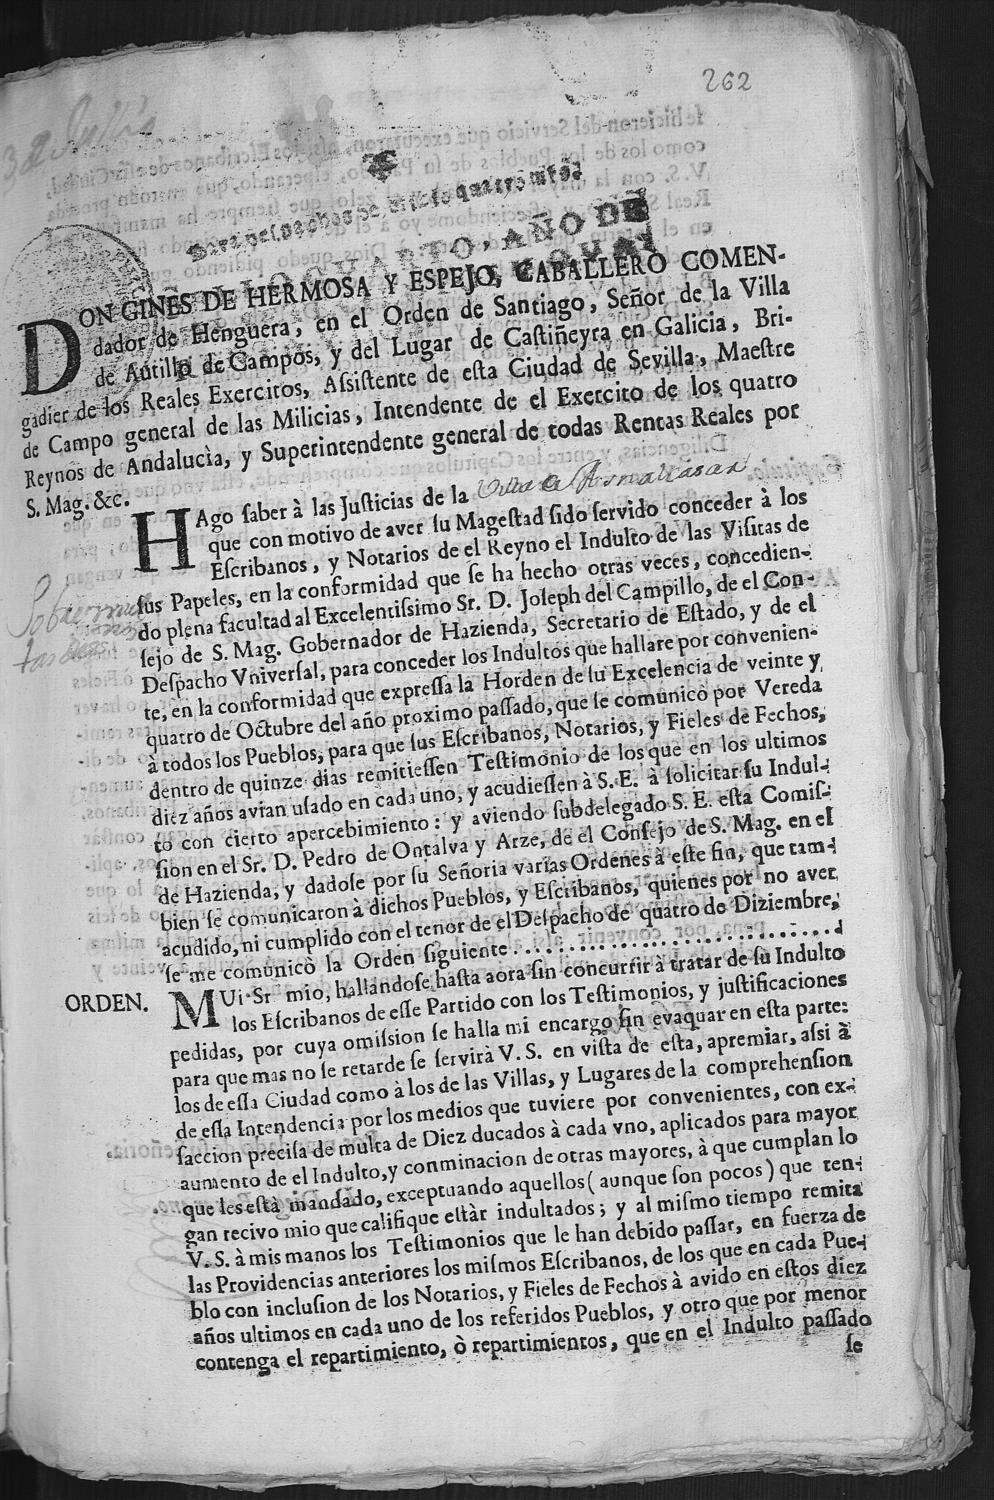 262
3 de Jullio
Para despachos de oficio quatro mrs.
SELLO QUARTO, AÑO DE
DON GINES DE HERMOSA Y ESPEJO, CABALLERO COMEN-
dador de Henguera, en el Orden de Santiago, Señor de la Villa
de Autillo de Campos, y del Lugar de Castiñeyra en Galicia, Bri-
gadier de los Reales Exercitos, Assistente de esta Ciudad de Sevilla, Maestre
de Campo general de las Milicias, Intendente de el Exercito de los quatro
Reynos de Andalucìa, y Superintendente general de todas Rentas Reales por
S. Mag. &c.
HAgo saber à las Justicias de la Villa de Asnalcasar
que con motivo de aver su Magestad sido servido conceder à los
Escribanos, y Notarios de el Reyno el Indulto de las Visitas de
sus Papeles, en la conformidad que se ha hecho otras veces, concedien-
do plena facultad al Excelentissimo Sr. D. Joseph del Campillo, de el Con-
sejo de S. Mag. Gobernador de Hazienda, Secretario de Estado, y de el
Despacho Vniversal, para conceder los Indultos que hallare por convenien-
te, en la conformidad que expressa la Horden de su Excelencia de veinte y
quatro de Octubre del año proximo passado, que se comunicò por Vereda
à todos los Pueblos, para que sus Escribanos, Notarios, y Fieles de Fechos,
dentro de quinze dias remitiessen Testimonio de los que en los ultimos
diez años avian usado en cada uno, y acudiessen à S. E. à solicitar su Indul-
to con cierto apercebimiento: y aviendo subdelegado S. E. esta Comis-
sion en el Sr. D. Pedro de Ontalva y Arze, de el Consejo de S. Mag. en el
de Hazienda, y dadose por su Señoria varias Ordenes à este fin, que tam-
bien se comunicaron à dichos Pueblos, y Escribanos, quienes por no aver
acudido, ni cumplido con el tenor de el Despacho de quatro de Diziembre,
se me comunicò la Orden siguiente..............................
ORDEN. MUi Sr mio, hallandose hasta aora sin concurrir à tratar de su Indulto
los Escribanos de esse Partido con los Testimonios, y justificaciones
pedidas, por cuya omission se halla mi encargo sin evaquar en esta parte:
para que mas no se retarde se servirà V. S. en vista de esta, apremiar, assi à
los de essa Ciudad como à los de las Villas, y Lugares de la comprehension
de essa Intendencia por los medios que tuviere por convenientes, con ex-
saccion precisa de multa de Diez ducados à cada vno, aplicados para mayor
aumento de el Indulto, y conminacion de otras mayores, à que cumplan lo
que les està mandado, exceptuando aquellos (aunque son pocos) que ten-
gan recivo mio que califique estàr indultados; y al mismo tiempo remita
V. S. à mis manos los Testimonios que le han debido passar, en fuerza de
las Providencias anteriores los mismos Escribanos, de los que en cada Pue-
blo con inclusion de los Notarios, y Fieles de Fechos à avido en estos diez
años ultimos en cada uno de los referidos Pueblos, y otro que por menor
contenga el repartimiento, ò repartimientos, que en el Indulto passado
se